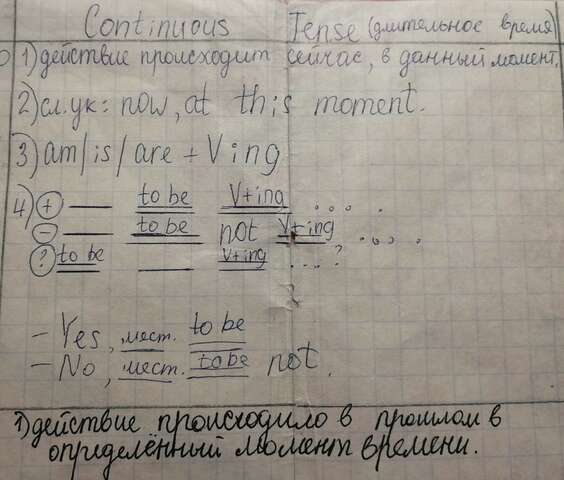 Continuous Tense (длительное время)
1) действие происходит сейчас, в данный момент.
2) сл.ук: now, at this moment.
3) am/is/are + Ving
4) + ___ to be V+ing ....
- ___ to be not V+ing ....
? to be ___ V+ing ...?
- Yes, мест. to be
- No, мест. to be not.
1) действие происходило в прошлом в
определённый момент времени.